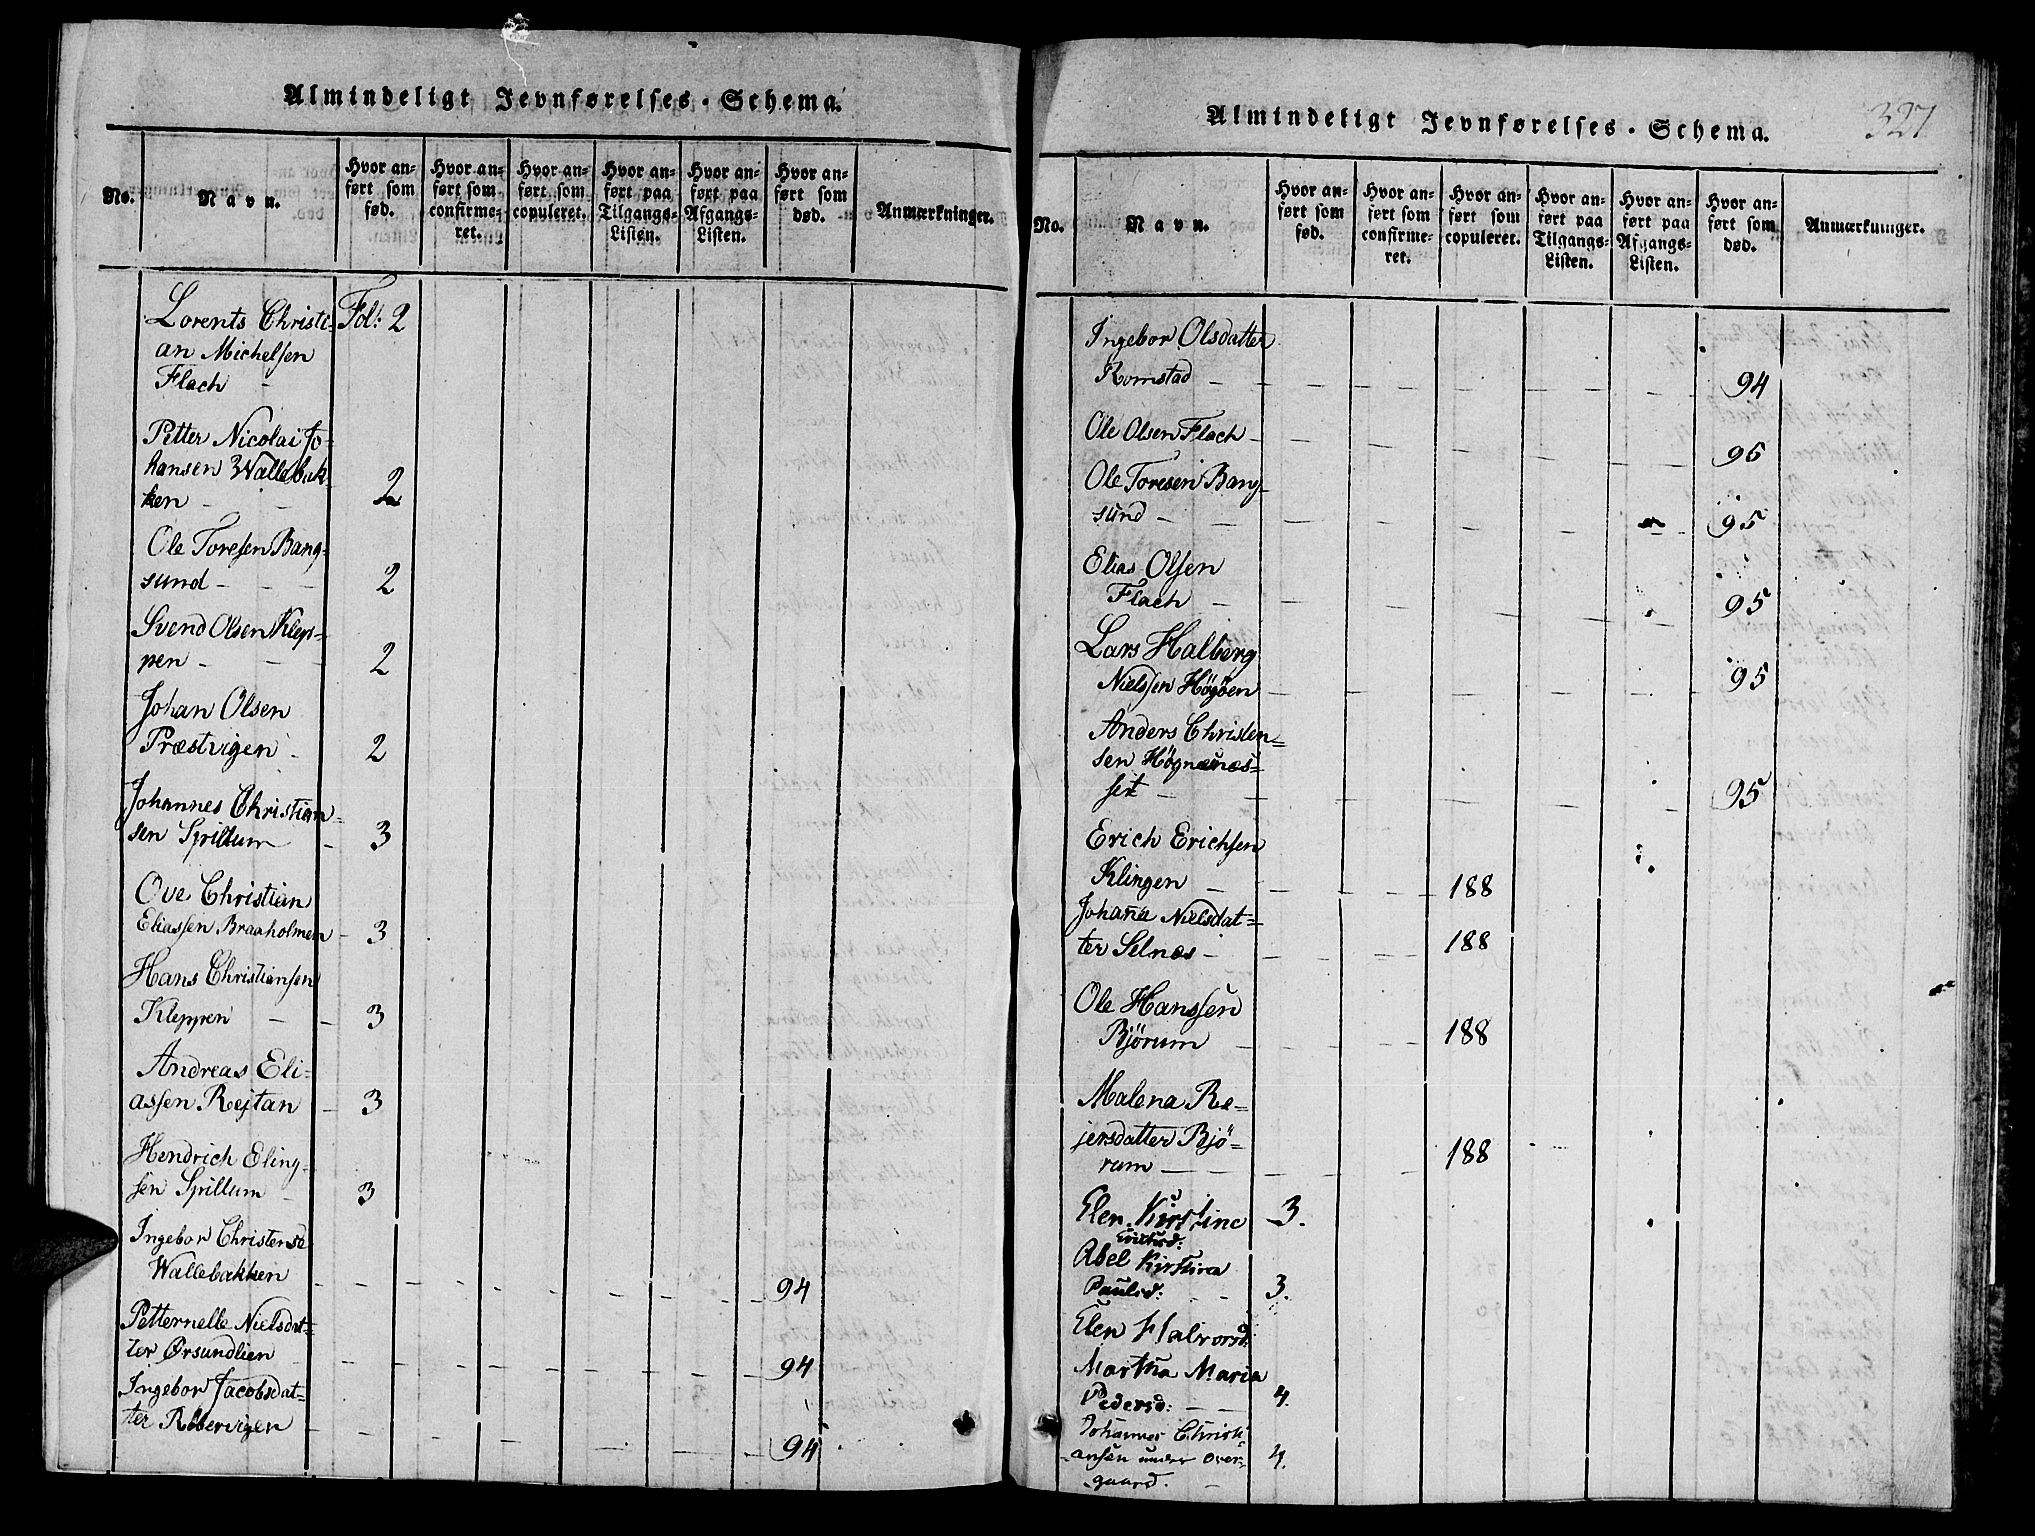 Almindeligt Jevnførelses-Schema.
No.
Navn.
Hvor an-
ført som
fød.
Hvor an-
ført som
confirme-
ret.
Hvor an-
ført som
copuleret.
Hvor an-
ført paa
Tilgangs-
Listen.
Hvor an-
ført paa
Afgangs-
Listen.
Hvor an-
ført som
død.
Anmærkninger.
Lorents Christi- Fol: 2
an Michelsen
Flach -
Petter Nicolai Jo-
hansen Wallebak-
ken - - 2
Ole Toresen Bang-
sund - - 2
Svend Olsen Klep-
pen - - - 2
Johan Olsen
Præstvigen - 2
Johannes Christian-
sen Spillum - 3
Ove Christian
Eliassen Braaholmen - 3
Hans Christiansen
Kleppen - - 3
Andreas Eli-
assen Rejtan - 3
Hendrich Eling-
sen Spillum - 3
Ingebor Christensd
Wallebakken - 94
Petternelle Nielsdat-
ter Ørsundlien - 94
Ingebor Jacobsdat-
ter - 94
Almindeligt Jevnførelses-Schema.
327
No.
Navn.
Hvor an-
ført som
fød.
Hvor an-
ført som
confirme-
ret.
Hvor an-
ført som
copuleret.
Hvor an-
ført paa
Tilgangs-
Listen.
Hvor an-
ført paa
Afgangs-
Listen.
Hvor an-
ført som
død.
Anmærkninger.
Ingebor Olsdatter
Romstad - 94
Ole Olsen Flach - 95
Ole Toresen Bang-
sund - 95
Elias Olsen
Flach - 95
Lars Halberg
Nielssen Högöen - 95
Anders Christen-
sen Högnesæs-
set - 95
Erich Erichsen
Klingen - 188
Johana Nielsdat-
ter Selnæs - 188
Ole Hanssen
Bjørum - 188
Malena Re-
jersdatter Bjö-
rum - 188
Elen Kirstine 3.
Abel Kirstina
Paulsd: - - 3.
Elen Halvorsd:
Martha Maria
Pedersd: - - 4.
Johannes Christi
-ansen under Over- 4.
-gaard. -